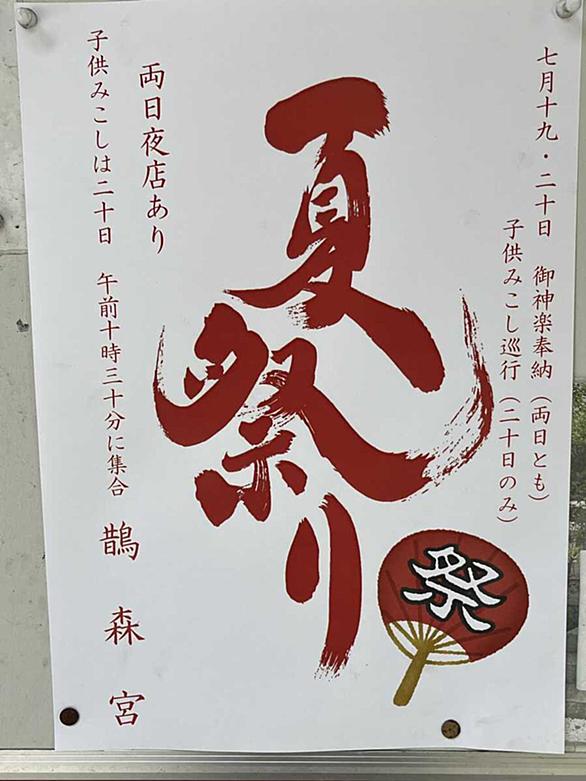 七月十九・二十日 御神楽奉納（両日とも）
子供みこし巡行（二十日のみ）
夏祭り
祭
両日夜店あり
子供みこしは二十日 午前十時三十分に集合
鵲森宮